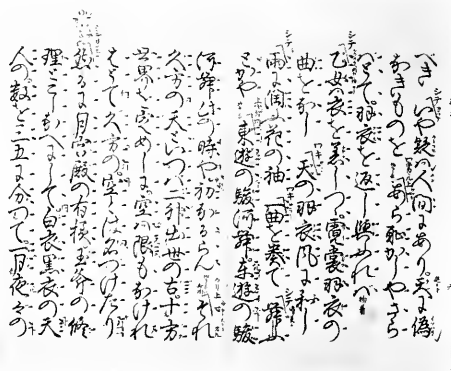 べき いや疑ハ人間にあり。天に偽
なきものを あら恥かしやさら
バとて。羽衣を返し與ふれバ 物着
シテ 乙女ハ衣を着しつゝ。霓裳羽衣の
曲をなし ワキ 天の羽衣風に和し
シテ 雨に潤ふ花の袖 ワキ 一曲を奏で シテ 舞ふ
とかや 東遊の駿河舞 東遊の駿
河舞 此時や初なるらん それ
久方の天といつハ 二神出世の古 十方
世界を定めしに 空ハ限もなけれ
バとて 久方の。空とハ名づけたり
然るに月宮殿の有様 玉斧の修
理とこしなへにして 白衣黒衣の天
人の。数を三五に分つて。一月夜々の